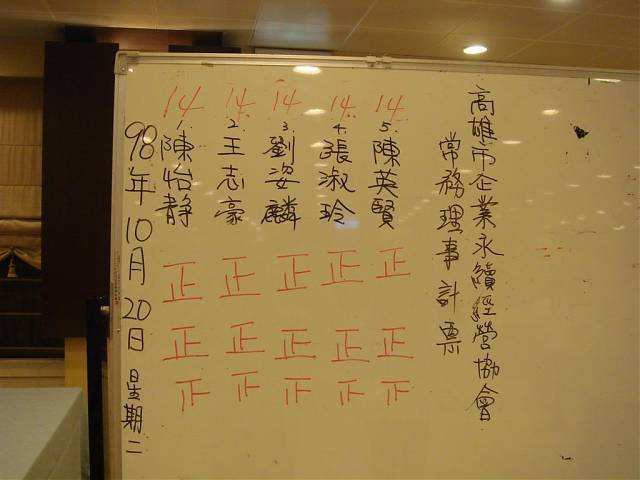 高雄市企業永續經營協會
常務理事計票
14 5. 陳英賢 正 正 𝍵
14 4. 張淑玲 正 正 𝍵
14 3. 劉姿麟 正 正 𝍵
14 2. 王志豪 正 正 𝍵
14 1. 陳怡靜 正 正 𝍵
98年10月20日 星期二